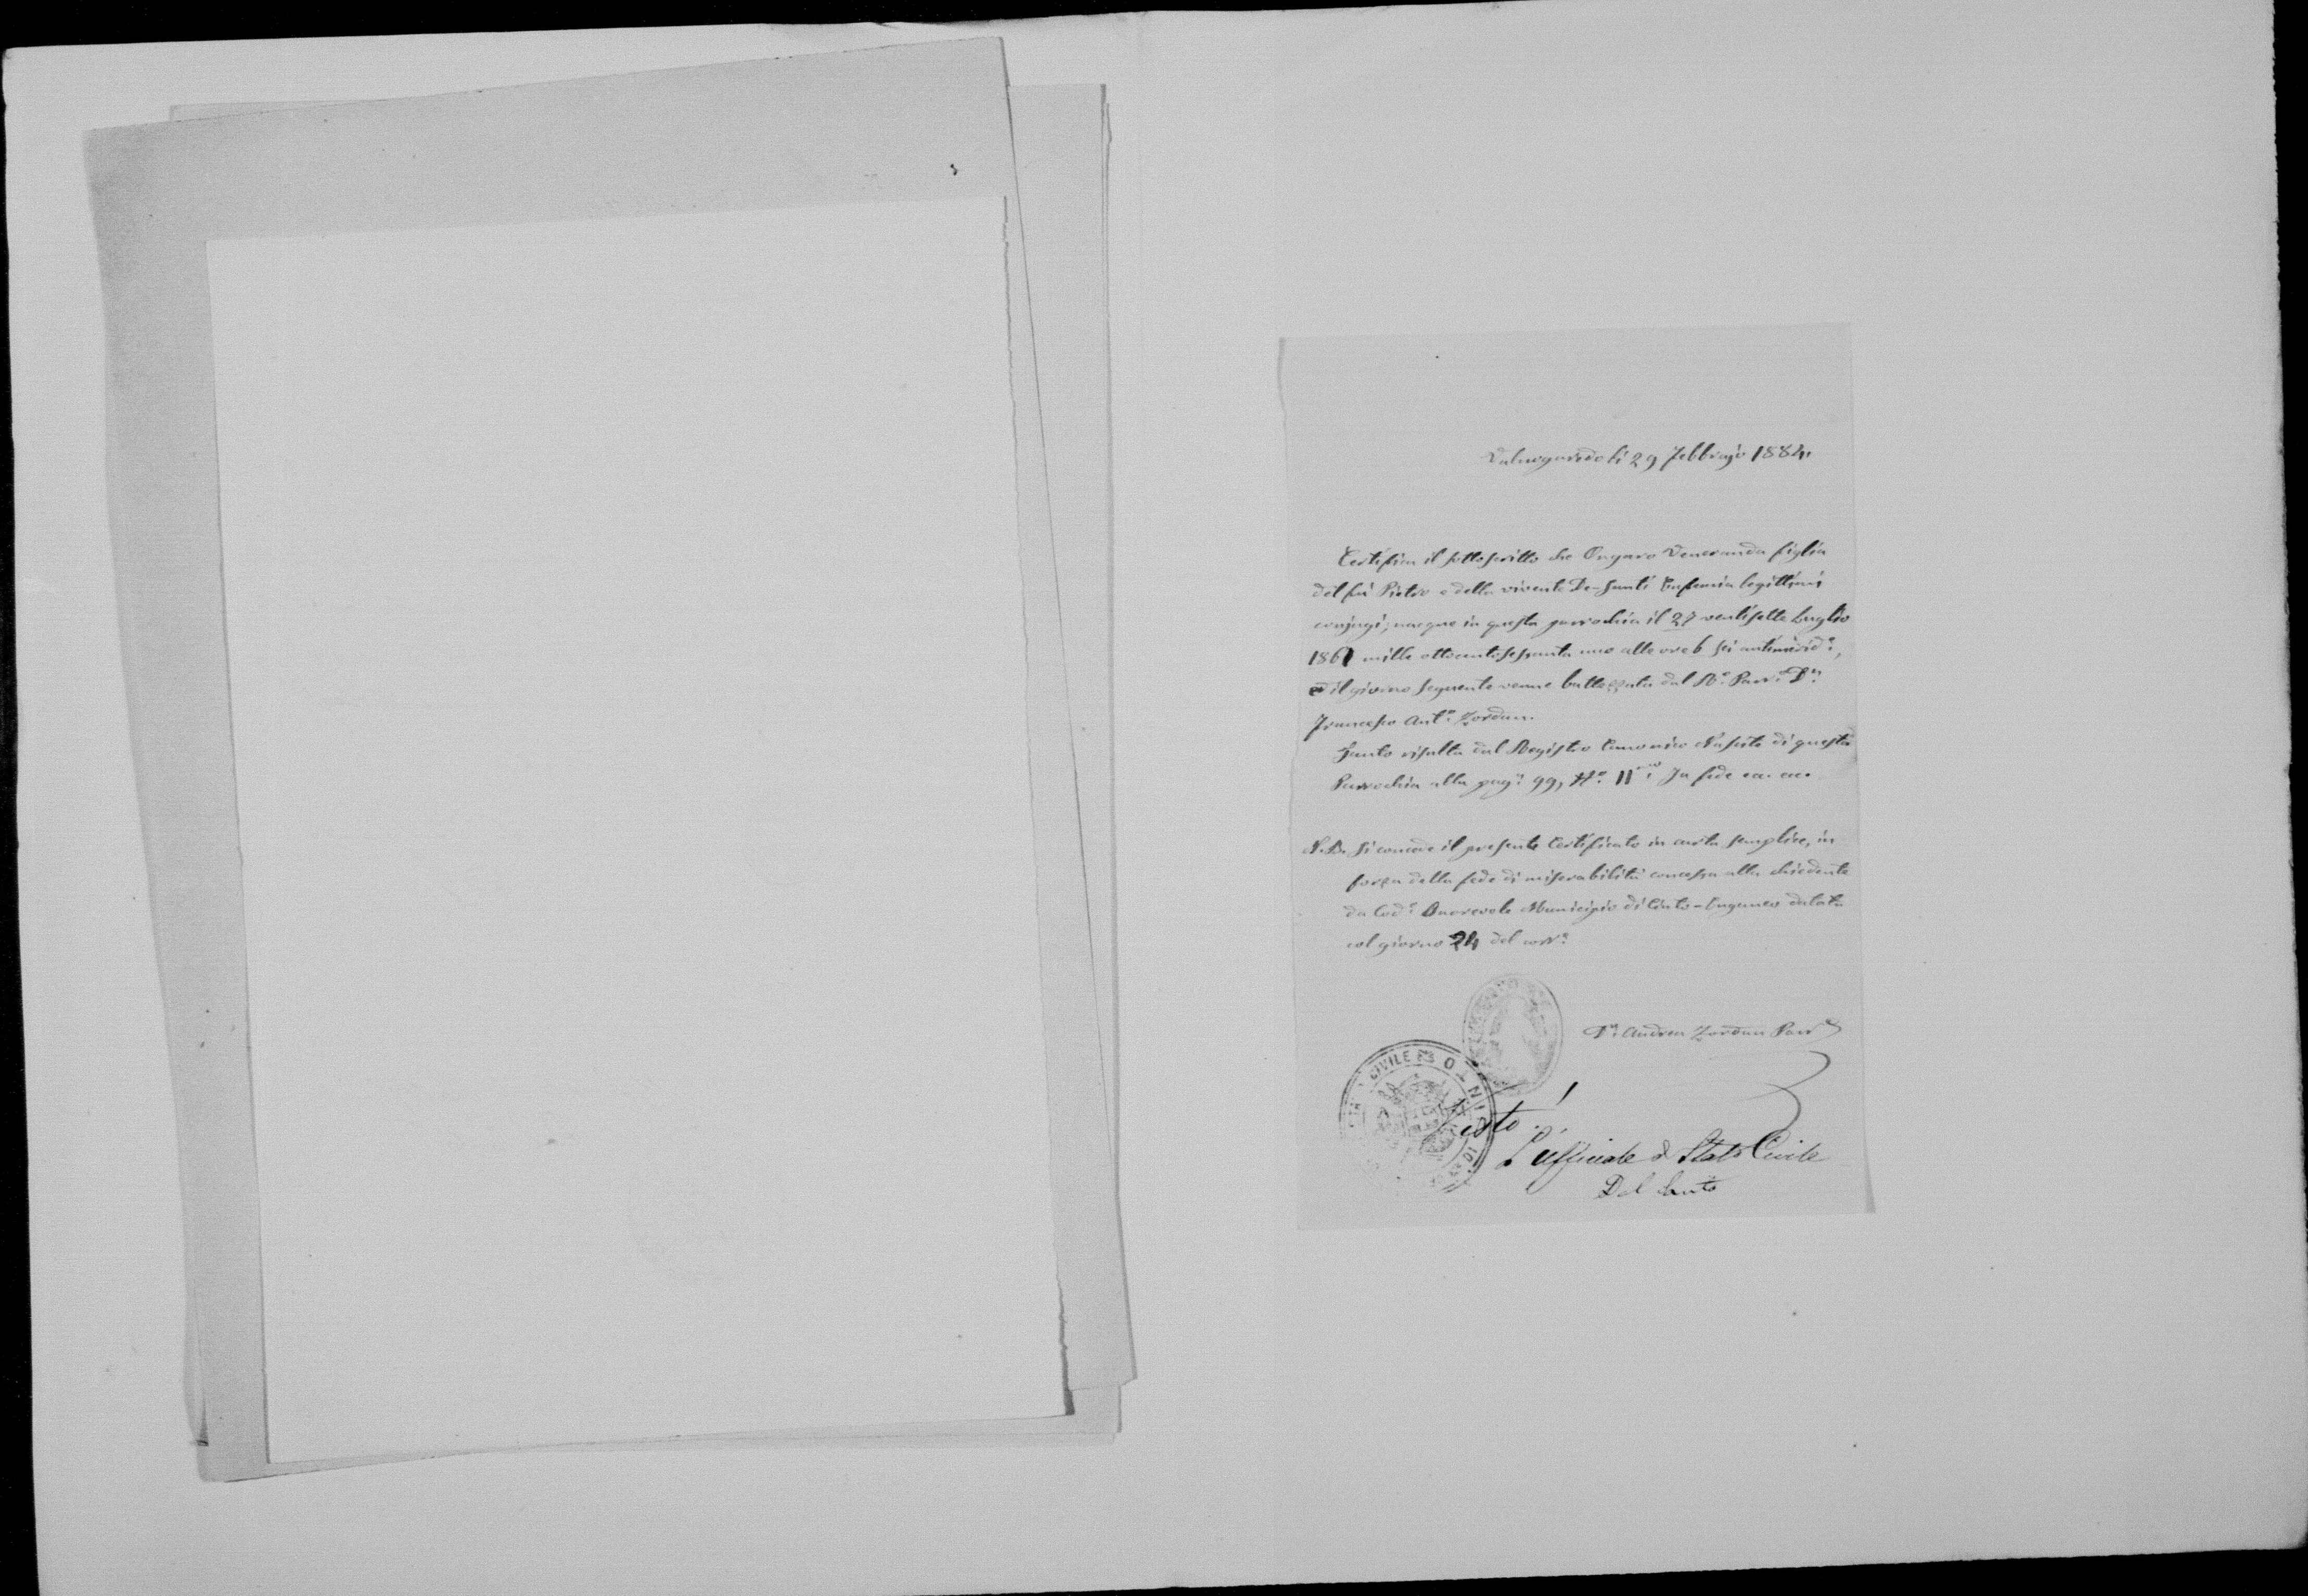 Valnogaredo li 29 Febbrajo 1884.
Certifica il sottoscritto che Ongaro Veneranda figlia
del fu Pietro e della vivente De-Santi Eufemia legittimi
conjugi; nacque in questa parrochia il 27 ventisette Luglio
1861 mille ottocentosessanta uno alle ore 6 sei antimerid.e,
ed il giorno seguente venne battezzata dal R.o Parr.o D.n
Francesco Ant.o Zordan.
Tanto risulta dal Registro Canonico Nascite di questa
Parrochia alla pag.a 99, N.o II In fede ec. ec.
N.B. Si concede il presente Certificato in carta semplice, in
forza della fede di miserabilità concessa alla chiedente
da Cod.o Onorevole Municipio di Cinto-Euganeo datata
col giorno 24 del corr.e
D.n Andrea Zordan Parr.o
CIVILE
CINTO
Visto!
L'Ufficiale d Stato Civile
Del Santo